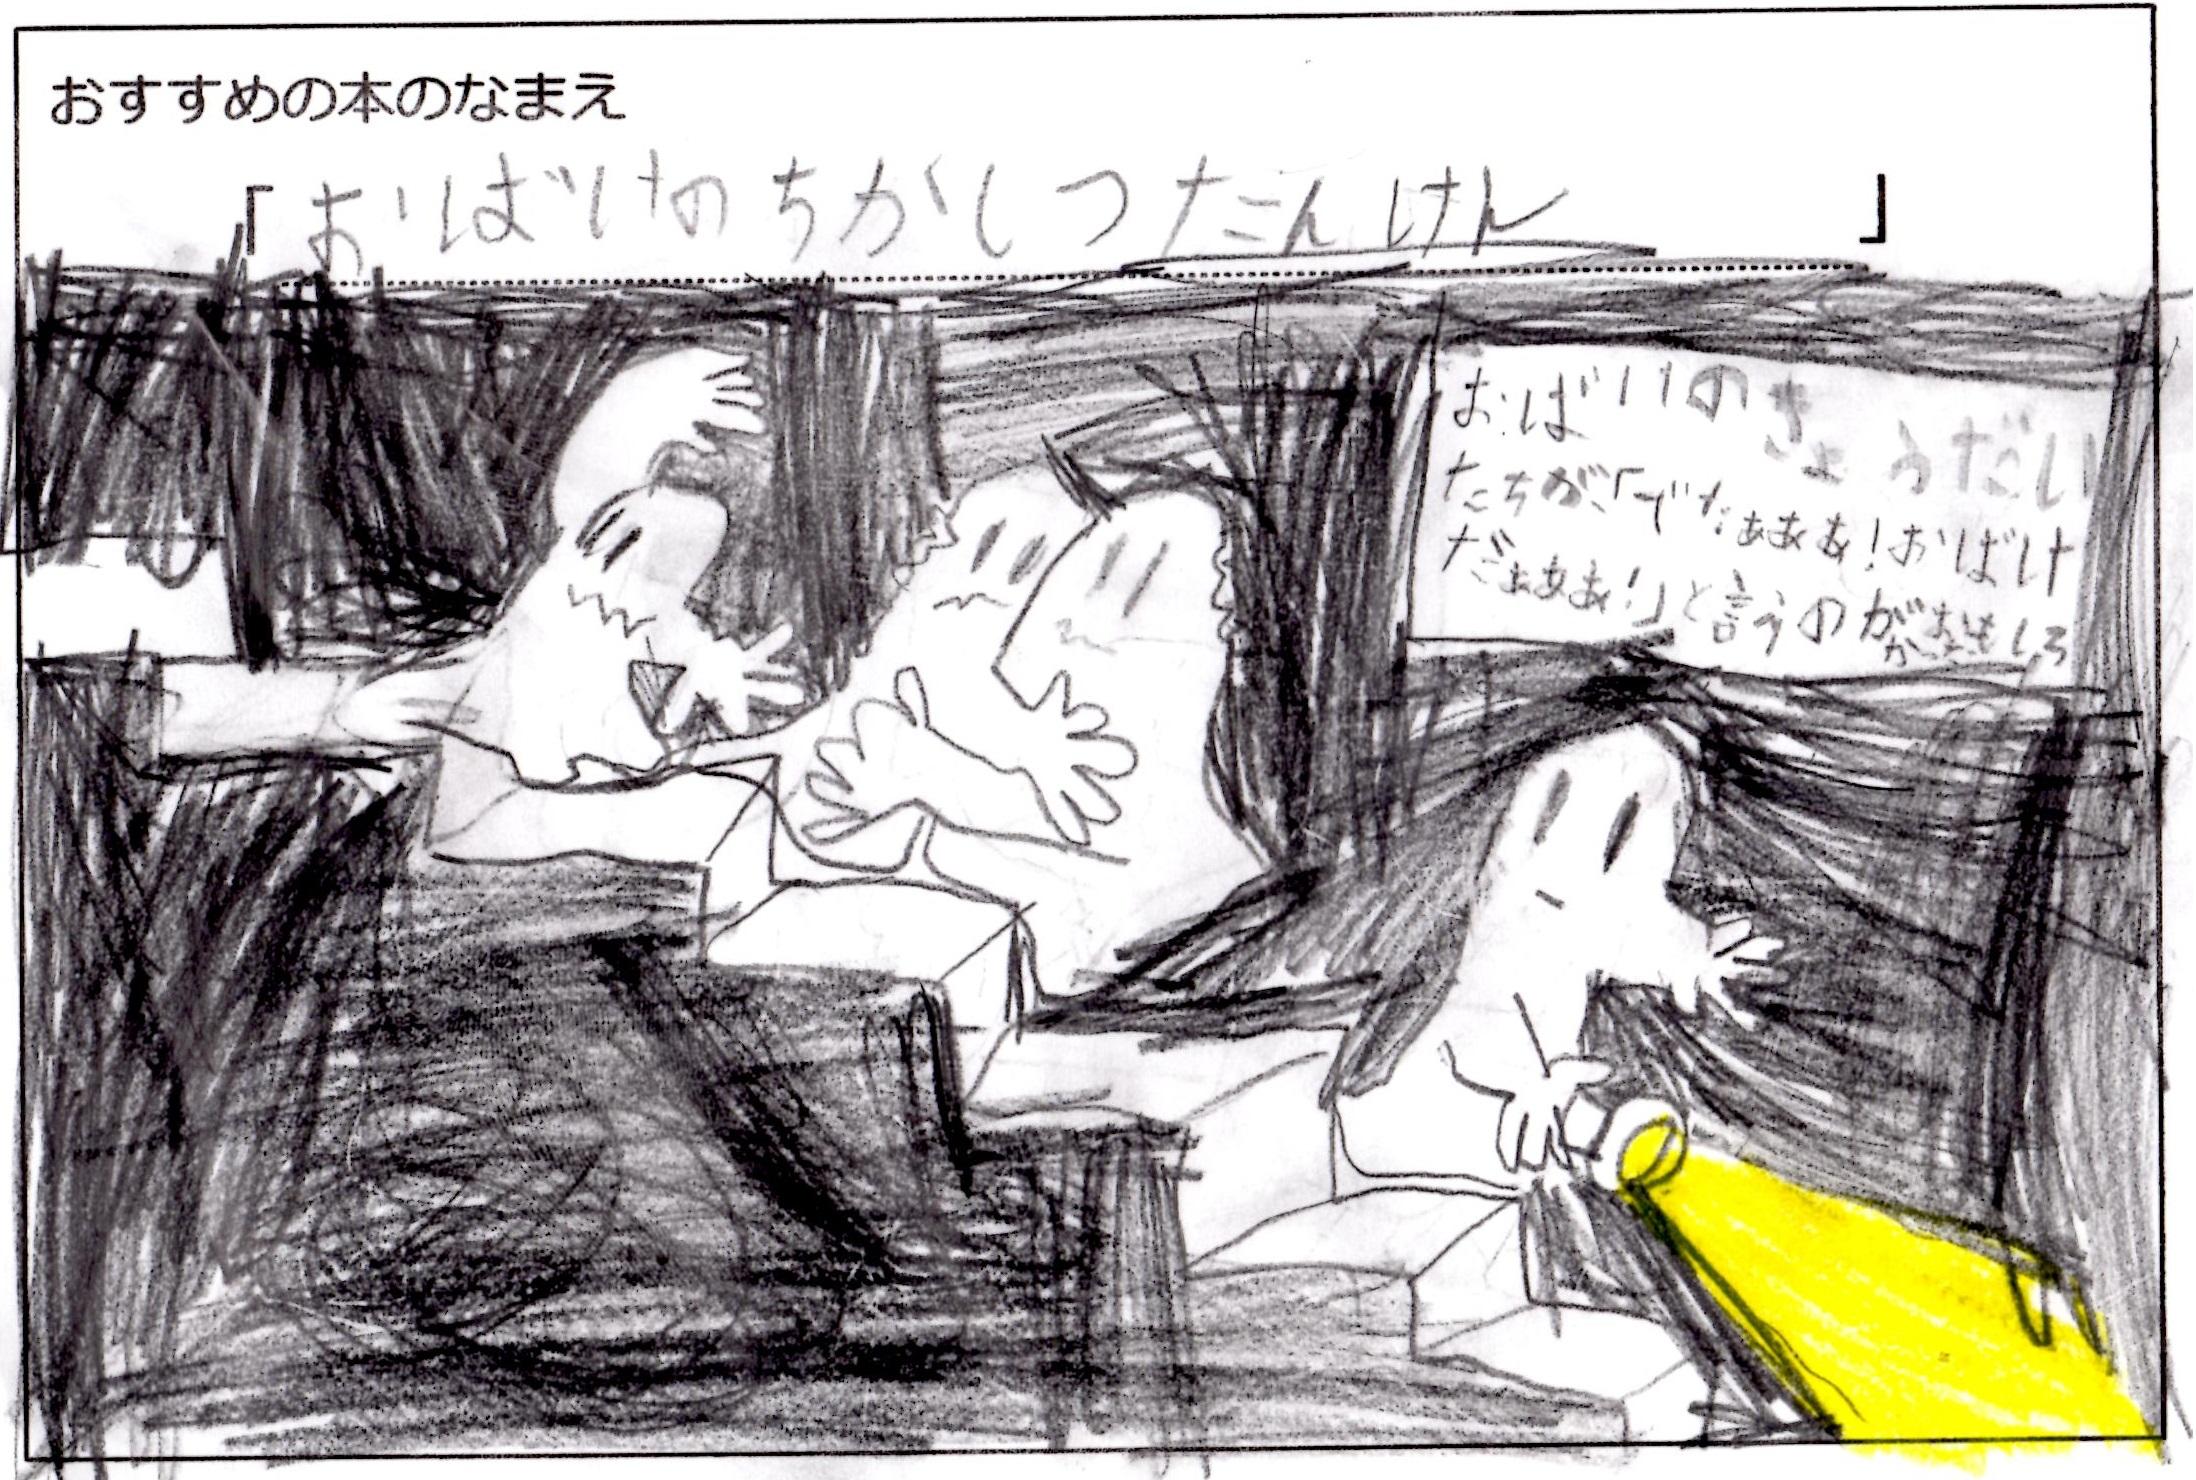 おすすめの本のなまえ
「おばけのちかしつたんけん」
おばけのきょうだい
たちが、「でたぁぁぁ!おばけ
だぁぁぁ!」と言うのがおもしろ